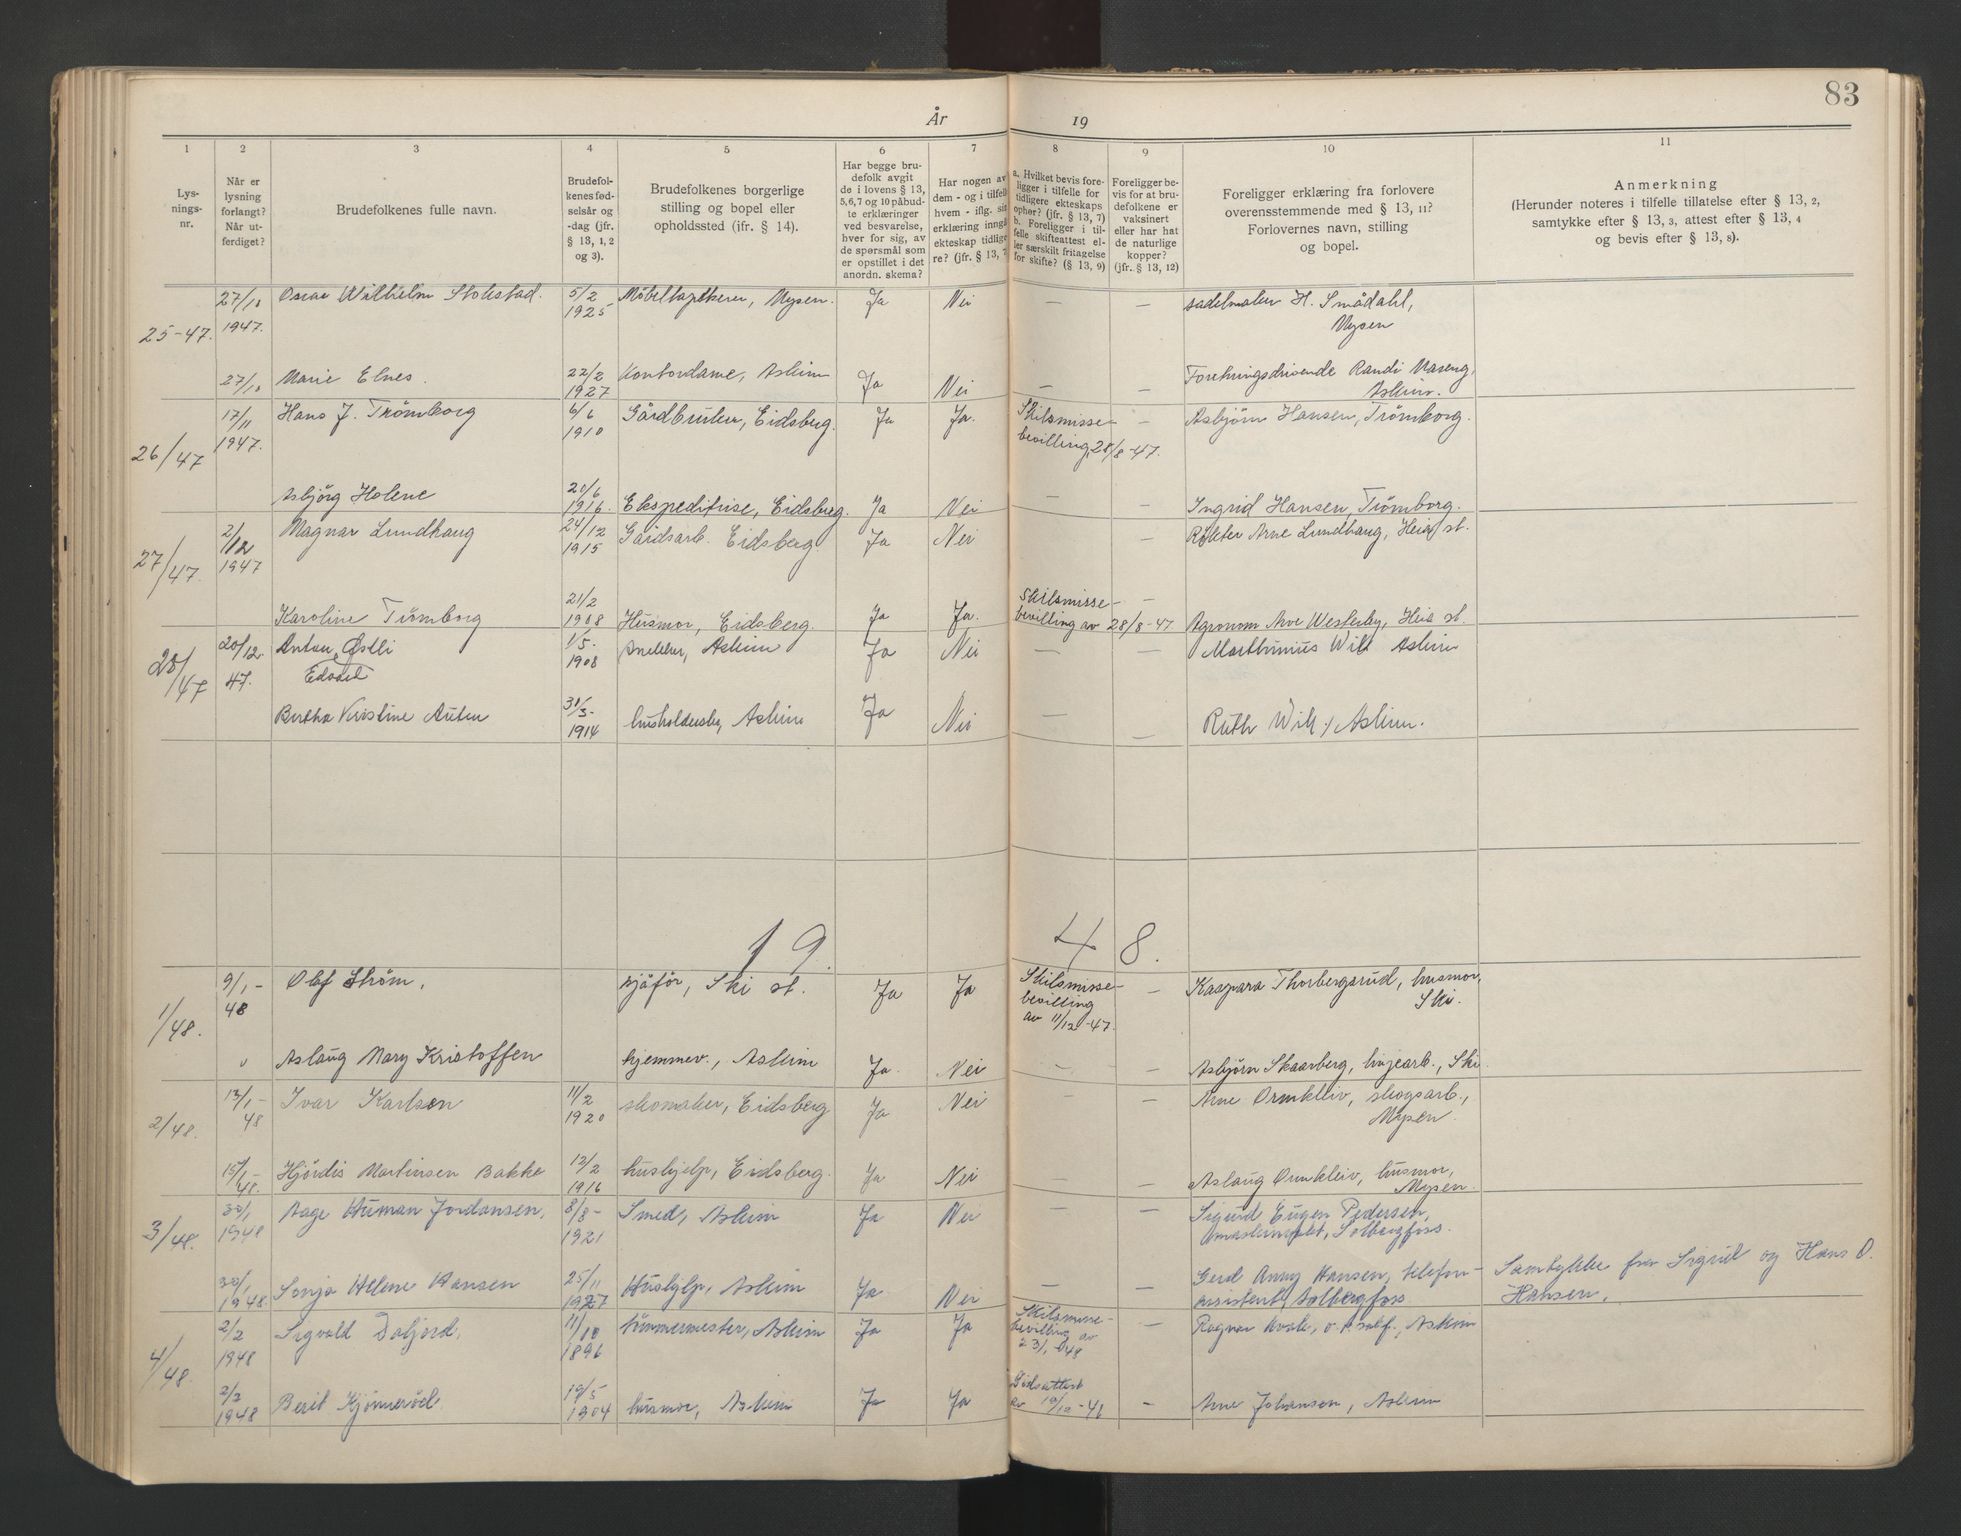 83
År 19
1 2 3 4 5 6 7 8 9 10 11
Lysnings-nr.
Når er lysning forlangt? Når utferdiget?
Brudefolkenes fulle navn.
Brudefolkenes fødselsår og -dag (jfr. § 13, 1, 2 og 3).
Brudefolkenes borgerlige stilling og bopel eller opholdssted (ifr. § 14).
Har begge brudefolk avgit de i lovens § 13, 5, 6, 7 og 10 påbudte erklæringer ved besvarelse, hver for sig, av de spørsmål som er opstillet i det anordn. skema?
Har nogen av dem - og i tilfelle hvem - iflg. sin erklæring inngå ekteskap tidligere? (jfr. § 13, 7
a. Hvilket bevis foreligger i tilfelle for tidligere ekteskaps ophør? (jfr. § 13, 7) b. Foreligger i tilfelle skifteattest eller særskilt fritagelse for skifte? (§ 13, 9)
Foreligger bevis for at brudefolkene er vaksinert eller har hat de naturlige kopper? (jfr. § 13, 12)
Foreligger erklæring fra forlovere overensstemmende med § 13, 11? Forlovernes navn, stilling og bopel.
Anmerkning (Herunder noteres i tilfelle tillatelse efter § 13, 2, samtykke efter § 13, 3, attest efter § 13, 4 og bevis efter § 13, 8).
25-47. 27/10 1947. Oscar Wilhelm Stokstad. 5/2 1925 Møbeltapetserer, Mysen. Ja Nei — — sadelmaker H. Smådahl,
Mysen
27/10 Marie Elnes. 22/2 1927 Kontordame, Askim Ja Nei — — Forretningsdrivende Randi Maseng,
Askim.
26/47 17/11 1947. Hans J. Trømborg 6/6 1910 Gårdbruker, Eidsberg. Ja Ja. Skilsmisse-
bevilling, 28/8-47. — Asbjørn Hansen, Trømborg.
Asbjørg Holene 20/6 1916. Ekspeditrise, Eidsberg. Ja Nei — — Ingrid Hansen, Trømborg.
27/47. 2/12 1947 Magnar Lundhaug 24/12 1915 Gårdsarb. Eidsberg Ja Nei — Røkter Arne Lundhaug, Heia st.
Karoline Trømborg 21/2 1908 Husmor, Eidsberg. Ja Ja. Skilsmisse-
bevilling av 28/8-47. — Agronom Arve Westerby, Heia st.
28/47 20/12. 47. Anton Østli
Edvard
1/5. 1908 Askim Ja Nei — — Marthinius Wik Askim
Bertha Kristine Auten 31/3- 1914 husholderske, Askim Ja Nei — — Ruth Wik, Askim.
19 48.
1/48. 9/1- 48 Olaf Strøm. sjåfør, Ski st. Ja Ja Skilsmisse-
bevilling
av 11/12-47. — Kaspara Thorbergsrud, husmor,
Ski.
" Aslaug Mary Kristoffen hjemmev., Askim Ja. Nei — — Asbjørn Skaarberg, linjearb., Ski.
2/48. 13/1- 48 Ivar Karlsen 11/2 1920 skomaker, Eidsberg Ja Nei — — Arne Ormkleiv, skogsarb.,
Mysen.
15/1- 48. Hjørdis Martinsen Bakke 12/2 1916 hushjelp, Eidsberg. Ja Nei — — Aslaug Ormkleiv, husmor,
Mysen.
3/48. 30/1 1948 Aage Human Jordansen. 8/8- 1921 Smed, Askim Ja Nei — — Sigurd Eugen Pedersen,
Solbergfoss.
30/1 1948. Sonja Helene Hansen 25/11 1927 Hushjelp, Askim Ja Nei — — Gerd Anny Hansen, telefon-
assistent, Solbergfoss. Samtykke fra Sigrid og Hans O.
Hansen.
4/48. 2/2 1948 Sigvald Daljord. 11/10 1896 tømmermester, Askim Ja Ja Skilsmisse-
bevilling av
23/1-48 — Ragnar Askim
2/2 1948 Berit Kjønnerød. 19/5 1904 husmor, Askim Ja Ja — Arne Johansen, Askim